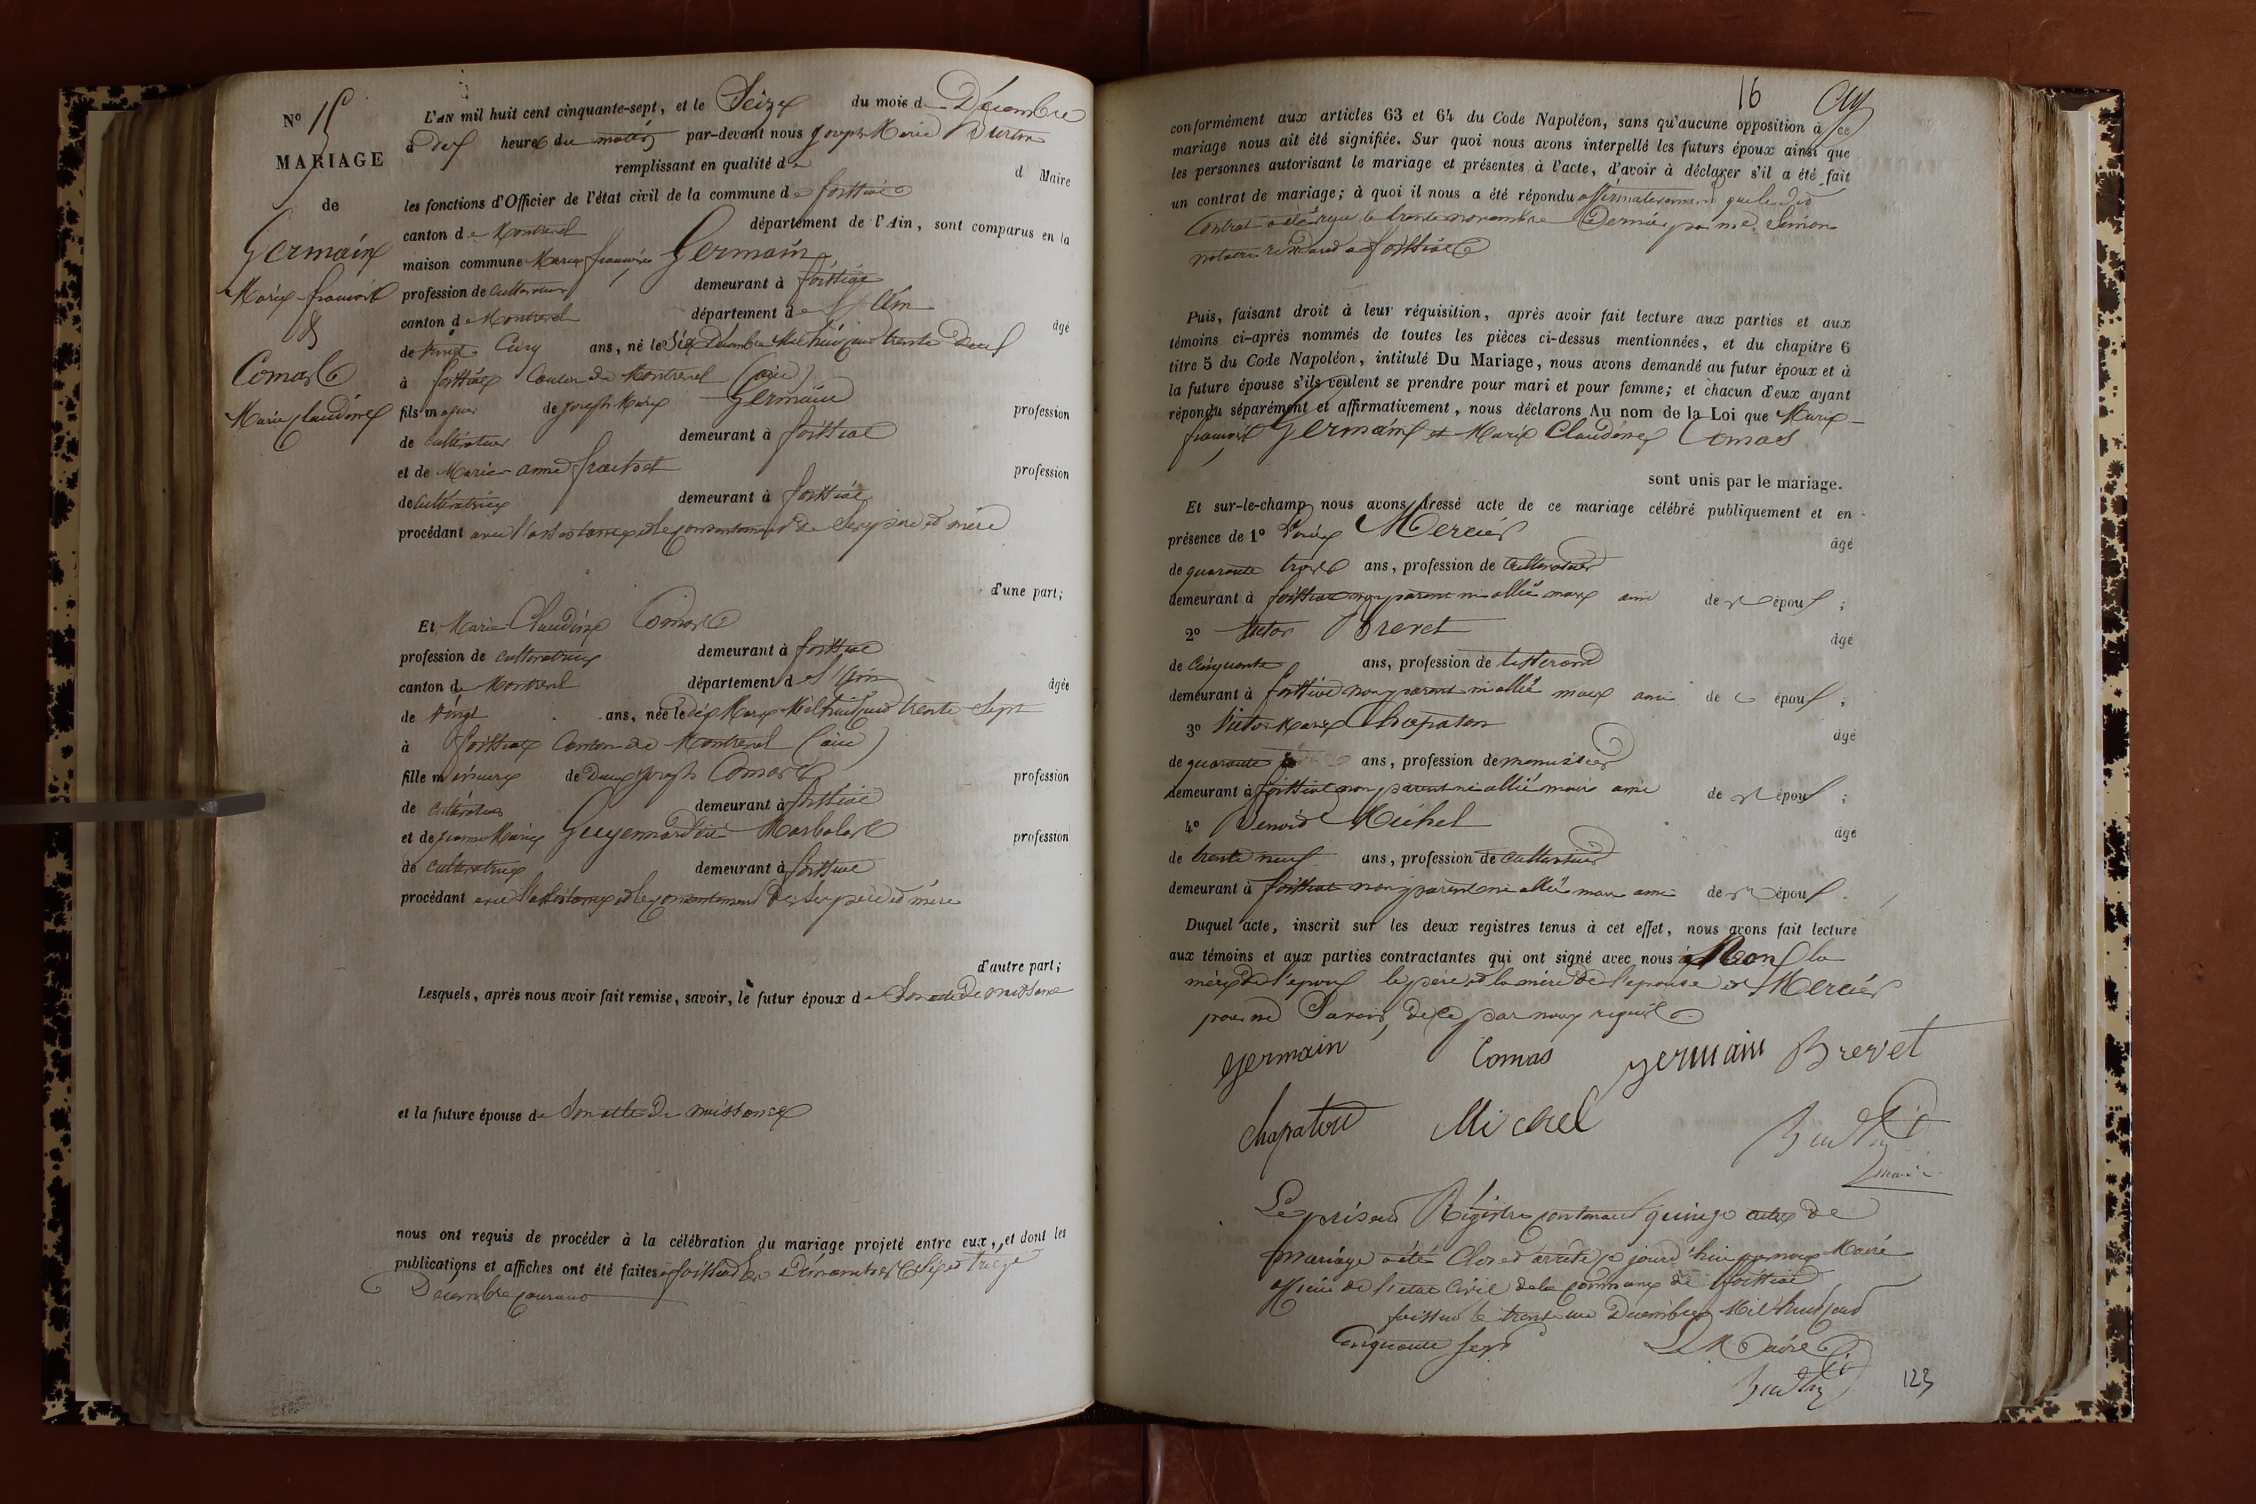 N° 15
MARIAGE
de
Germain
Marie-françois
&
Comas
Marie Claudine
L'AN mil huit cent cinquante-sept, et le Seize du mois de Décembre
à dix heures du matin par-devant nous Joseph Marie
remplissant en qualité de d Maire
les fonctions d'Officier de l'état civil de la commune de foissiat
canton de Montrevel département de l'Ain, sont comparus en la
maison commune Marie françois Germain
profession de cultivateur demeurant à foissiat
canton de Montrevel département de l'Ain âgé
de vingt cinq ans, né le Six Décembre Mil huit cent trente deux
à foissiat Canton de Montrevel (ain)
fils majeur de Joseph Marie Germain profession
de cultivateur demeurant à foissiat
et de Marie anne profession
de cultivatrice demeurant à foissiat
procédant avec l'assistance et le consentement de Ses père et mère
d'une part;
Et Marie Claudine Comas
profession de cultivatrice demeurant à foissiat
canton de Montrevel département de l'Ain âgée
de vingt ans, née le dix Mars Mil huit cent trente Sept
à foissiat Canton de Montrevel (ain)
fille mineure de Joseph Comas profession
de cultivateur demeurant à foissiat
et de jeanne Marie Guyennard dit profession
de cultivatrice demeurant à foissiat
procédant avec l'assistance et le consentement de Ses père et mère
d'autre part;
Lesquels, après nous avoir fait remise, savoir, le futur époux de Son acte De naissance
et la future épouse de Son acte De naissance
nous ont requis de procéder à la célébration du mariage projeté entre eux, et dont les
publications et affiches ont été faites à foissiat les Dimanches Six et treize
Décembre courant
16
conformément aux articles 63 et 64 du Code Napoléon, sans qu'aucune opposition à ce
mariage nous ait été signifiée. Sur quoi nous avons interpellé les futurs époux ainsi que
les personnes autorisant le mariage et présentes à l'acte, d'avoir à déclarer s'il a été fait
un contrat de mariage; à quoi il nous a été répondu affirmativement que ledit
Contrat a été reçu le trente novembre Dernier par me Simon
notaire résidant à foissiat
Puis, faisant droit à leur réquisition, après avoir fait lecture aux parties et aux
témoins ci-après nommés de toutes les pièces ci-dessus mentionnées, et du chapitre 6
titre 5 du Code Napoléon, intitulé Du Mariage, nous avons demandé au futur époux et à
la future épouse s'ils veulent se prendre pour mari et pour femme; et chacun d'eux ayant
répondu séparément et affirmativement, nous déclarons Au nom de la Loi que Marie-
françois Germain et Marie Claudine Comas
sont unis par le mariage.
Et sur-le-champ nous avons dressé acte de ce mariage célébré publiquement et en
présence de 1° Mercier âgé
de quarante trois ans, profession de cultivateur
demeurant à foissiat non parent ni allié mais ami de l'époux;
2° Victor Brevet âgé
de Cinquante ans, profession de tisserand
demeurant à foissiat non parent ni allié mais ami de l'époux;
3° Victor Marie Chapaton âgé
de quarante ans, profession de menuisier
demeurant à foissiat non parent ni allié mais ami de l'époux;
4° Benoit Michel âgé
de trente neuf ans, profession de cultivateur
demeurant à foissiat non parent ni allié mais ami de l'époux.
Duquel acte, inscrit sur les deux registres tenus à cet effet, nous avons fait lecture
aux témoins et aux parties contractantes qui ont signé avec nous Non la
mère de l'époux le père et la mère de l'épouse et Mercier
pour ne Savoir, de ce par nous requis
germain Comas germain Brevet
chapaton Michel
maire
Le présent Régistre contenant quinze actes de
mariage a été Clos et arrêté ce jourd'hui par nous Maire
officier de l'état Civil de la commune de foissiat
foissiat le trente un Décembre Mil huit cent
cinquante sept Le Maire
123